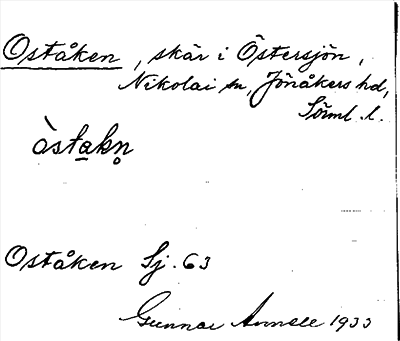 Oståken, skär i Östersjön,
Nikolai sn, Jönåkers hd,
Sörml. l.
òstakn̥
Oståken Sj. 63
Gunnar Annell 1933